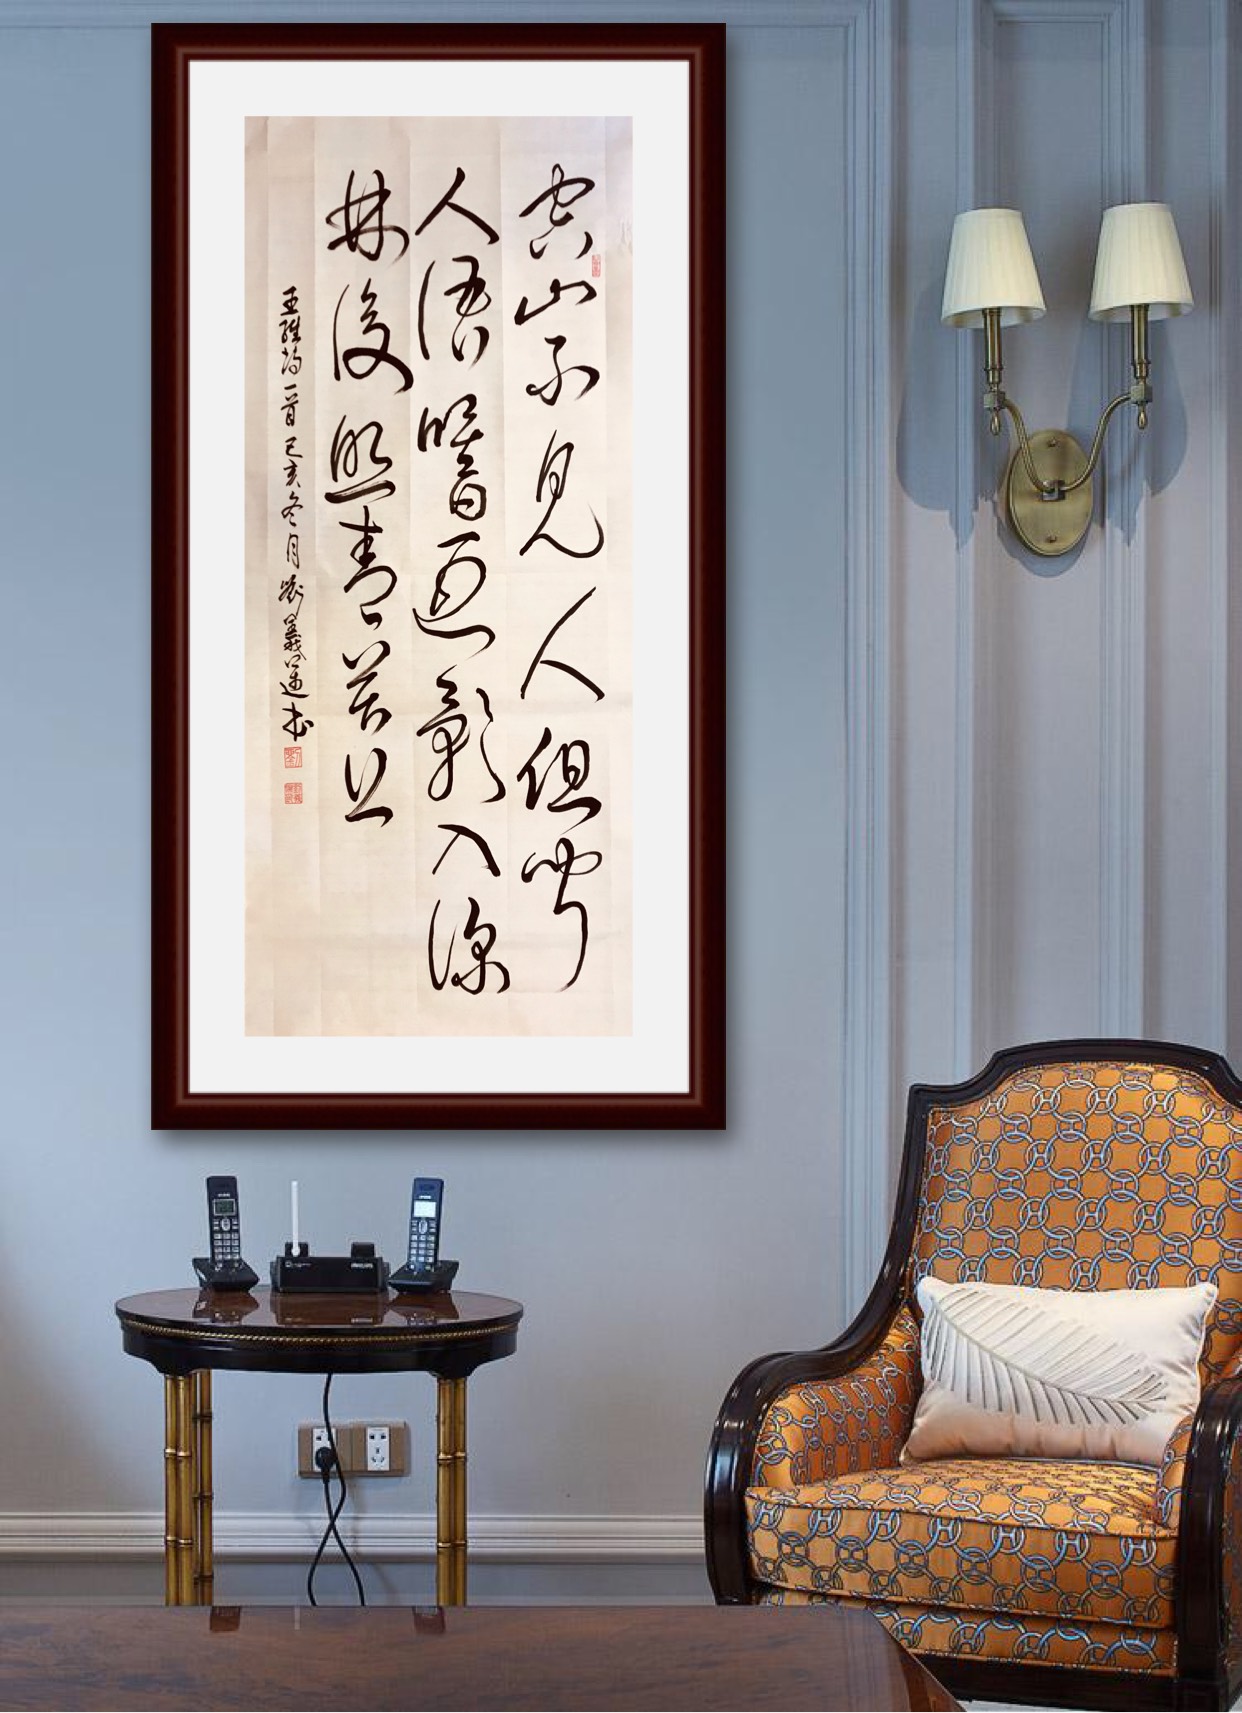 空山不見人但聞
人語響迴影入深
林復照青苔上
王維詩一首己亥冬月劉義书